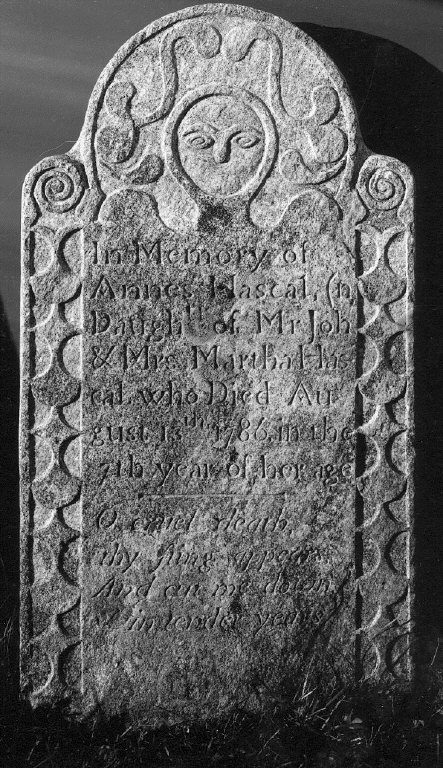 In Memory of
Annes Hascal, (n
Daugh^tr of Mr Joh
& Mrs. Martha Has
cal, who Died Au
gust 13th 1786, in the
7th year of her age
O cruel death,
thy sting appears
And cut me down
so in tender years